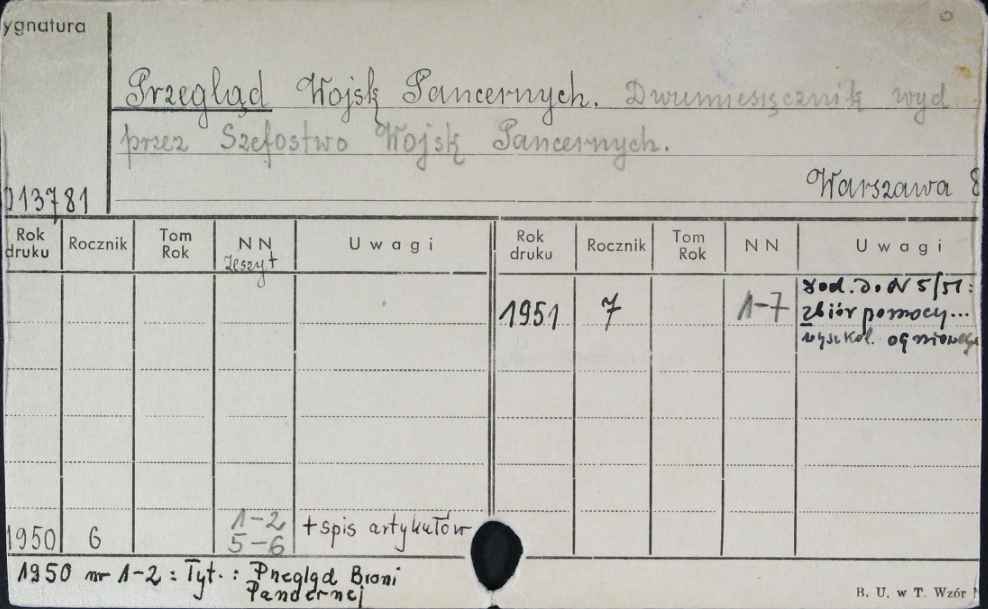 ygnatura
Przegląd Wojsk Pancernych. Dwumiesięcznik wyd
przez Szefostwo Wojsk Pancernych.
Warszawa 8
013781
Rok druku Rocznik Tom Rok NN Zeszyt Uwagi Rok druku Rocznik Tom Rok NN Uwagi
1951 7 1-7 dod. do N 5/51:
zbiór pomocy...
wyszkol. ogniowego
1950 6 1-2 5-6 + spis artykułów
1950 nr 1-2 = Tyt. : Przegląd Broni
Pancernej
B. U. w T. Wzór